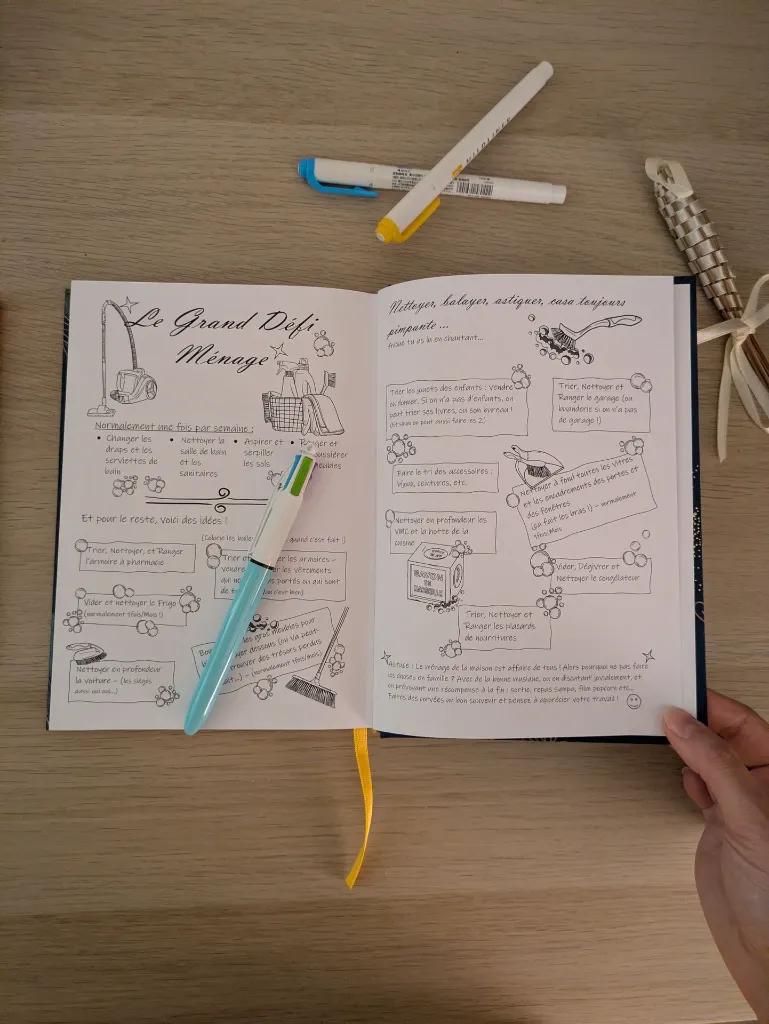 MILDLINER
Le Grand Défi
Ménage
Normalement une fois par semaine :
• Changer les
draps et les
serviettes de
bain
• Nettoyer la
salle de bain
et les
sanitaires
• Aspirer et
serpiller
les sols
• Ranger et
Et pour le reste, voici des idées !
(Colorie les
quand c'est fait !)
Trier, Nettoyer, et Ranger
l'armoire à pharmacie
Trier et
les armoires –
vendre
les vêtements
qui ne
portés ou qui sont
de
(ou c'est bien)
Vider et nettoyer le Frigo
(normalement 1fois/Mois !)
les gros meubles pour
dessous (on va peut-
trouver des trésors perdus
(normalement 1fois/mois)
Nettoyer en profondeur
la voiture – (les sièges
aussi oui oui...)
Nettoyer, balayer, astiquer, casa toujours
pimpante ...
Avoue tu as lu en chantant...
Trier les jouets des enfants : vendre
ou donner. Si on n'a pas d'enfants, on
peut trier ses livres, ou son bureau !
(et sinon on peut aussi faire les 2)
Trier, Nettoyer et
Ranger le garage (ou
buanderie si on n'a pas
de garage !)
Faire le tri des accessoires :
bijoux, ceintures, etc.
Nettoyer à fond toutes les vitres
et les encadrements des portes et
des fenêtres
(ça fait les bras !) – normalement
1fois/Mois
Nettoyer en profondeur les
VMC et la hotte de la
cuisine
SAVON
DE
MARSEILLE
Vider, Dégivrer et
Nettoyer le congélateur
Trier, Nettoyer et
Ranger les placards
de nourritures
Astuce : Le ménage de la maison est affaire de tous ! Alors pourquoi ne pas faire
les choses en famille ? Avec de la bonne musique, ou en discutant jovialement, et
en prévoyant une récompense à la fin : sortie, repas sympa, film popcorn etc...
Faites des corvées un bon souvenir et pensez à apprécier votre travail !